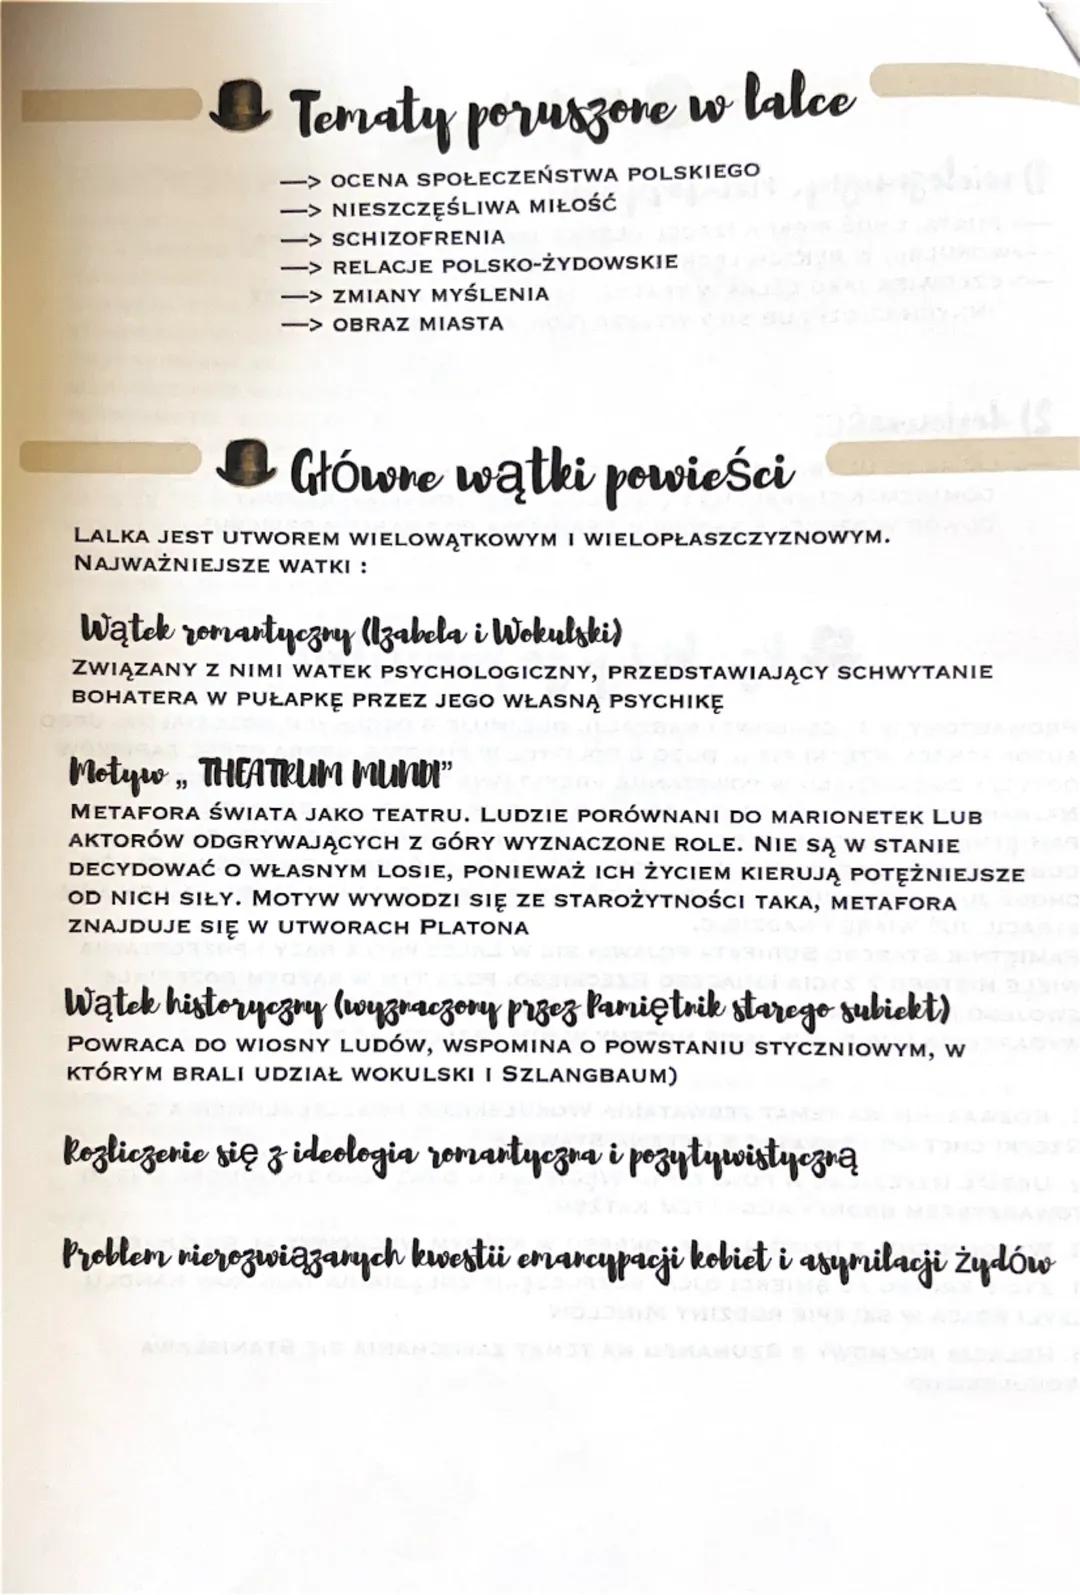 Tematy poruszone w lalce
—> OCENA SPOŁECZEŃSTWA POLSKIEGO
—> NIESZCZĘŚLIWA MIŁOŚĆ
—> SCHIZOFRENIA
—> RELACJE POLSKO-ŻYDOWSKIE
—> ZMIANY MYŚLENIA
—> OBRAZ MIASTA
Główne wątki powieści
LALKA JEST UTWOREM WIELOWĄTKOWYM I WIELOPŁASZCZYZNOWYM.
NAJWAŻNIEJSZE WATKI :
Wątek romantyczny (Izabela i Wokulski)
ZWIĄZANY Z NIMI WATEK PSYCHOLOGICZNY, PRZEDSTAWIAJĄCY SCHWYTANIE
BOHATERA W PUŁAPKĘ PRZEZ JEGO WŁASNĄ PSYCHIKĘ
Motyw „ THEATRUM MUNDI”
METAFORA ŚWIATA JAKO TEATRU. LUDZIE PORÓWNANI DO MARIONETEK LUB
AKTORÓW ODGRYWAJĄCYCH Z GÓRY WYZNACZONE ROLE. NIE SĄ W STANIE
DECYDOWAĆ O WŁASNYM LOSIE, PONIEWAŻ ICH ŻYCIEM KIERUJĄ POTĘŻNIEJSZE
OD NICH SIŁY. MOTYW WYWODZI SIĘ ZE STAROŻYTNOŚCI TAKA, METAFORA
ZNAJDUJE SIĘ W UTWORACH PLATONA
Wątek historyczny (wyznaczony przez Pamiętnik starego subiekt)
POWRACA DO WIOSNY LUDÓW, WSPOMINA O POWSTANIU STYCZNIOWYM, W
KTÓRYM BRALI UDZIAŁ WOKULSKI I SZLANGBAUM)
Rozliczenie się z ideologia romantyczna i pozytywistyczną
Problem nierozwiązanych kwestii emancypacji kobiet i asymilacji żydów